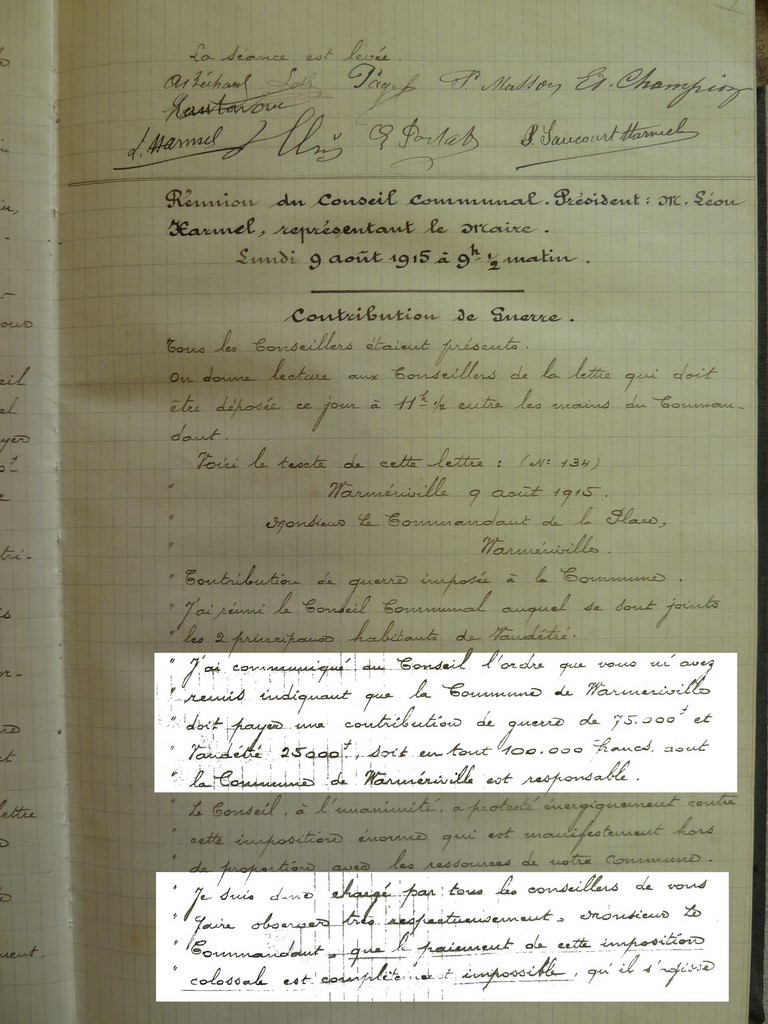 La séance est levée.
P. Masson Et. Champion
L. Harmel G Portat P. Saucourt Harmel
Réunion du Conseil Communal. Président : M. Léon
Harmel, représentant le Maire.
Lundi 9 août 1915 à 9h 1/2 matin.
Contribution de Guerre.
Tous les Conseillers étaient présents.
On donne lecture aux Conseillers de la lettre qui doit
être déposée ce jour à 11h 1/2 entre les mains du Comman-
dant.
Voici le texte de cette lettre : (No 134)
" Warmériville 9 août 1915.
" Monsieur Le Commandant de la Place,
" Warmériville.
" Contribution de guerre imposée à la Commune.
" J'ai réuni le Conseil Communal auquel se sont joints
" les 2 principaux habitants de Vaudétré.
" J'ai communiqué au Conseil l'ordre que vous m'avez
" remis indiquant que la Commune de Warmeriville
" doit payer une contribution de guerre de 75.000f et
" Vaudétré 25000f, soit en tout 100.000 francs, dont
" la Commune de Warmériville est responsable.
" Le Conseil, à l'unanimité, a protesté énergiquement contre
" cette imposition énorme qui est manifestement hors
" de proportion avec les ressources de notre Commune.
" Je suis donc chargé par tous les conseillers de vous
" faire observer très respectueusement, Monsieur Le
" Commandant, que le paiement de cette imposition
" colossale est complètement impossible, qu'il s'agisse